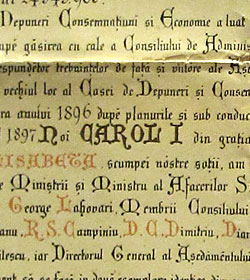 Depuneri Consemnațiuni și Economie a luat
după găsirea cu cale a Consiliului de Adminis
respundetor trebuintelor de față și viitore ale Ase
vechiul loc al Casei de Depuneri și Consem
ra anului 1896 după planurile și sub conduc
1897 Noi CAROL I din grația
LISABETA, scumpei nostre soții, am
e Miniștrii și Ministru al Afacerilor S
George Lahovari, Membrii Consiliului
anu, R. S. Campiniu, D. C. Dimitriu, Diar
itescu, iar Directorul General al Așezămêntului